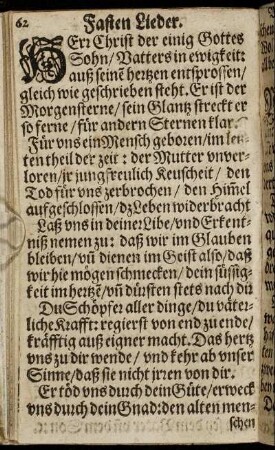 62 Fasten Lieder.
HErꝛ Christ der einig Gottes
Sohn / Vatters in ewigkeit:
auß seinẽ hertzen entsprossen /
gleich wie geschrieben steht. Er ist der
Morgensterne / sein Glantz streckt er
so ferne / für andern Sternen klar.
Für vns ein Mensch geboꝛen / im letz-
ten theil der zeit : der Mutter vnver-
loꝛen / jr jungfreulich Keuscheit / den
Tod für vns zerbrochen / den Him̃el
aufgeschlossen / dz Leben widerbracht
Laß vns in deiner Libe / vnd Erkent-
niß nemen zu: daß wir im Glauben
bleiben / vñ dienen im Geist also / daß
wir hie mögen schmecken / dein süssig-
keit im hertzẽ / vñ dürsten stets nach dir
Du Schöpfer aller dinge / du väter-
liche Krafft: regierst von end zu ende /
kräfftig auß eigner macht. Das hertz
vns zu dir wende / vnd kehr ab vnser
Sinne / daß sie nicht jrꝛen von dir.
Er töd vns durch dein Güte / erweck
vns durch dein Gnad: den alten men-
schen